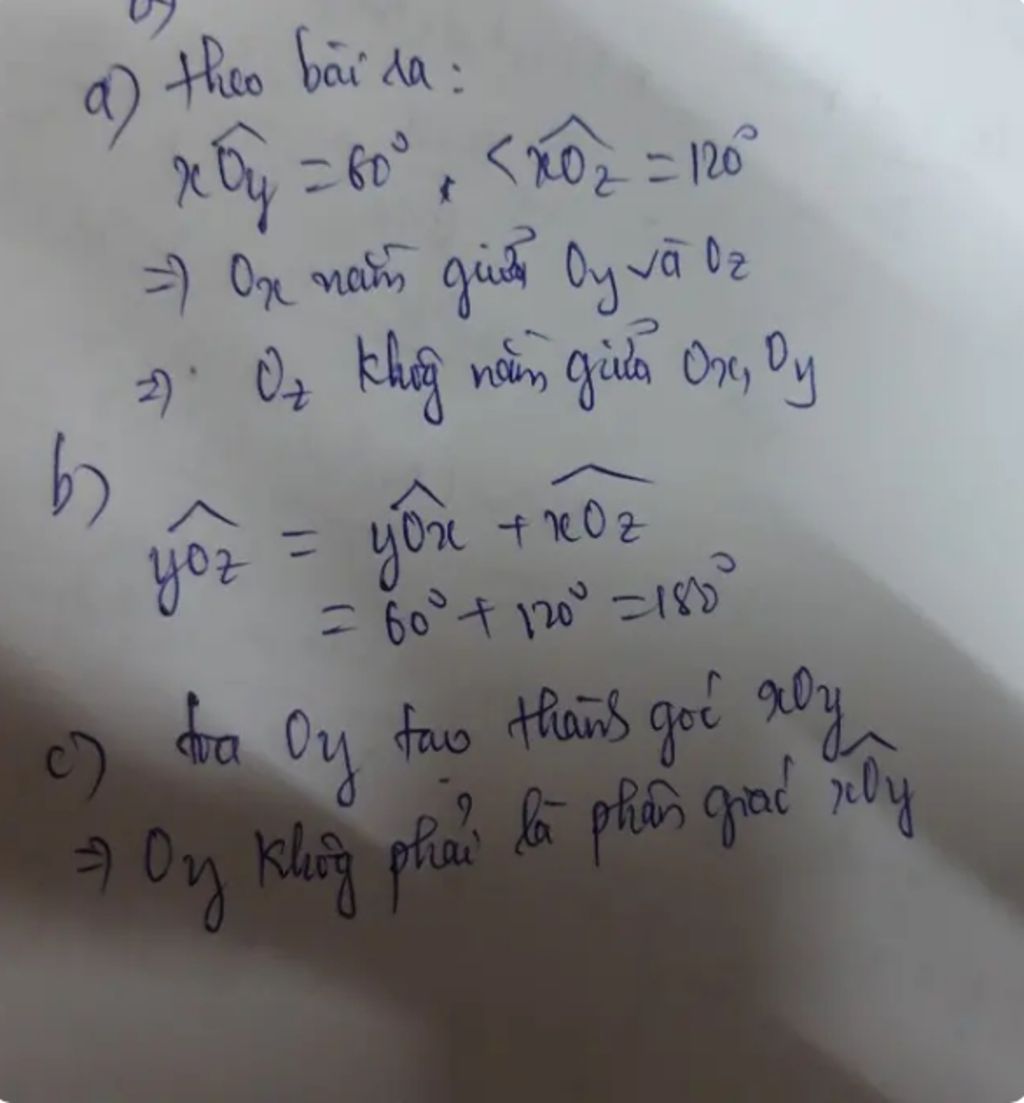 a) theo bài ra:
xOy = 60°, < xOz = 120°
=> Ox nằm giữa Oy và Oz
=> Oz khôg nằm giữa Ox, Oy
b)
yOz = yOx + xOz
= 60° + 120° = 180°
c) tia Oy tạo thành góc xOy
=> Oy khôg phải là phân giác xOy